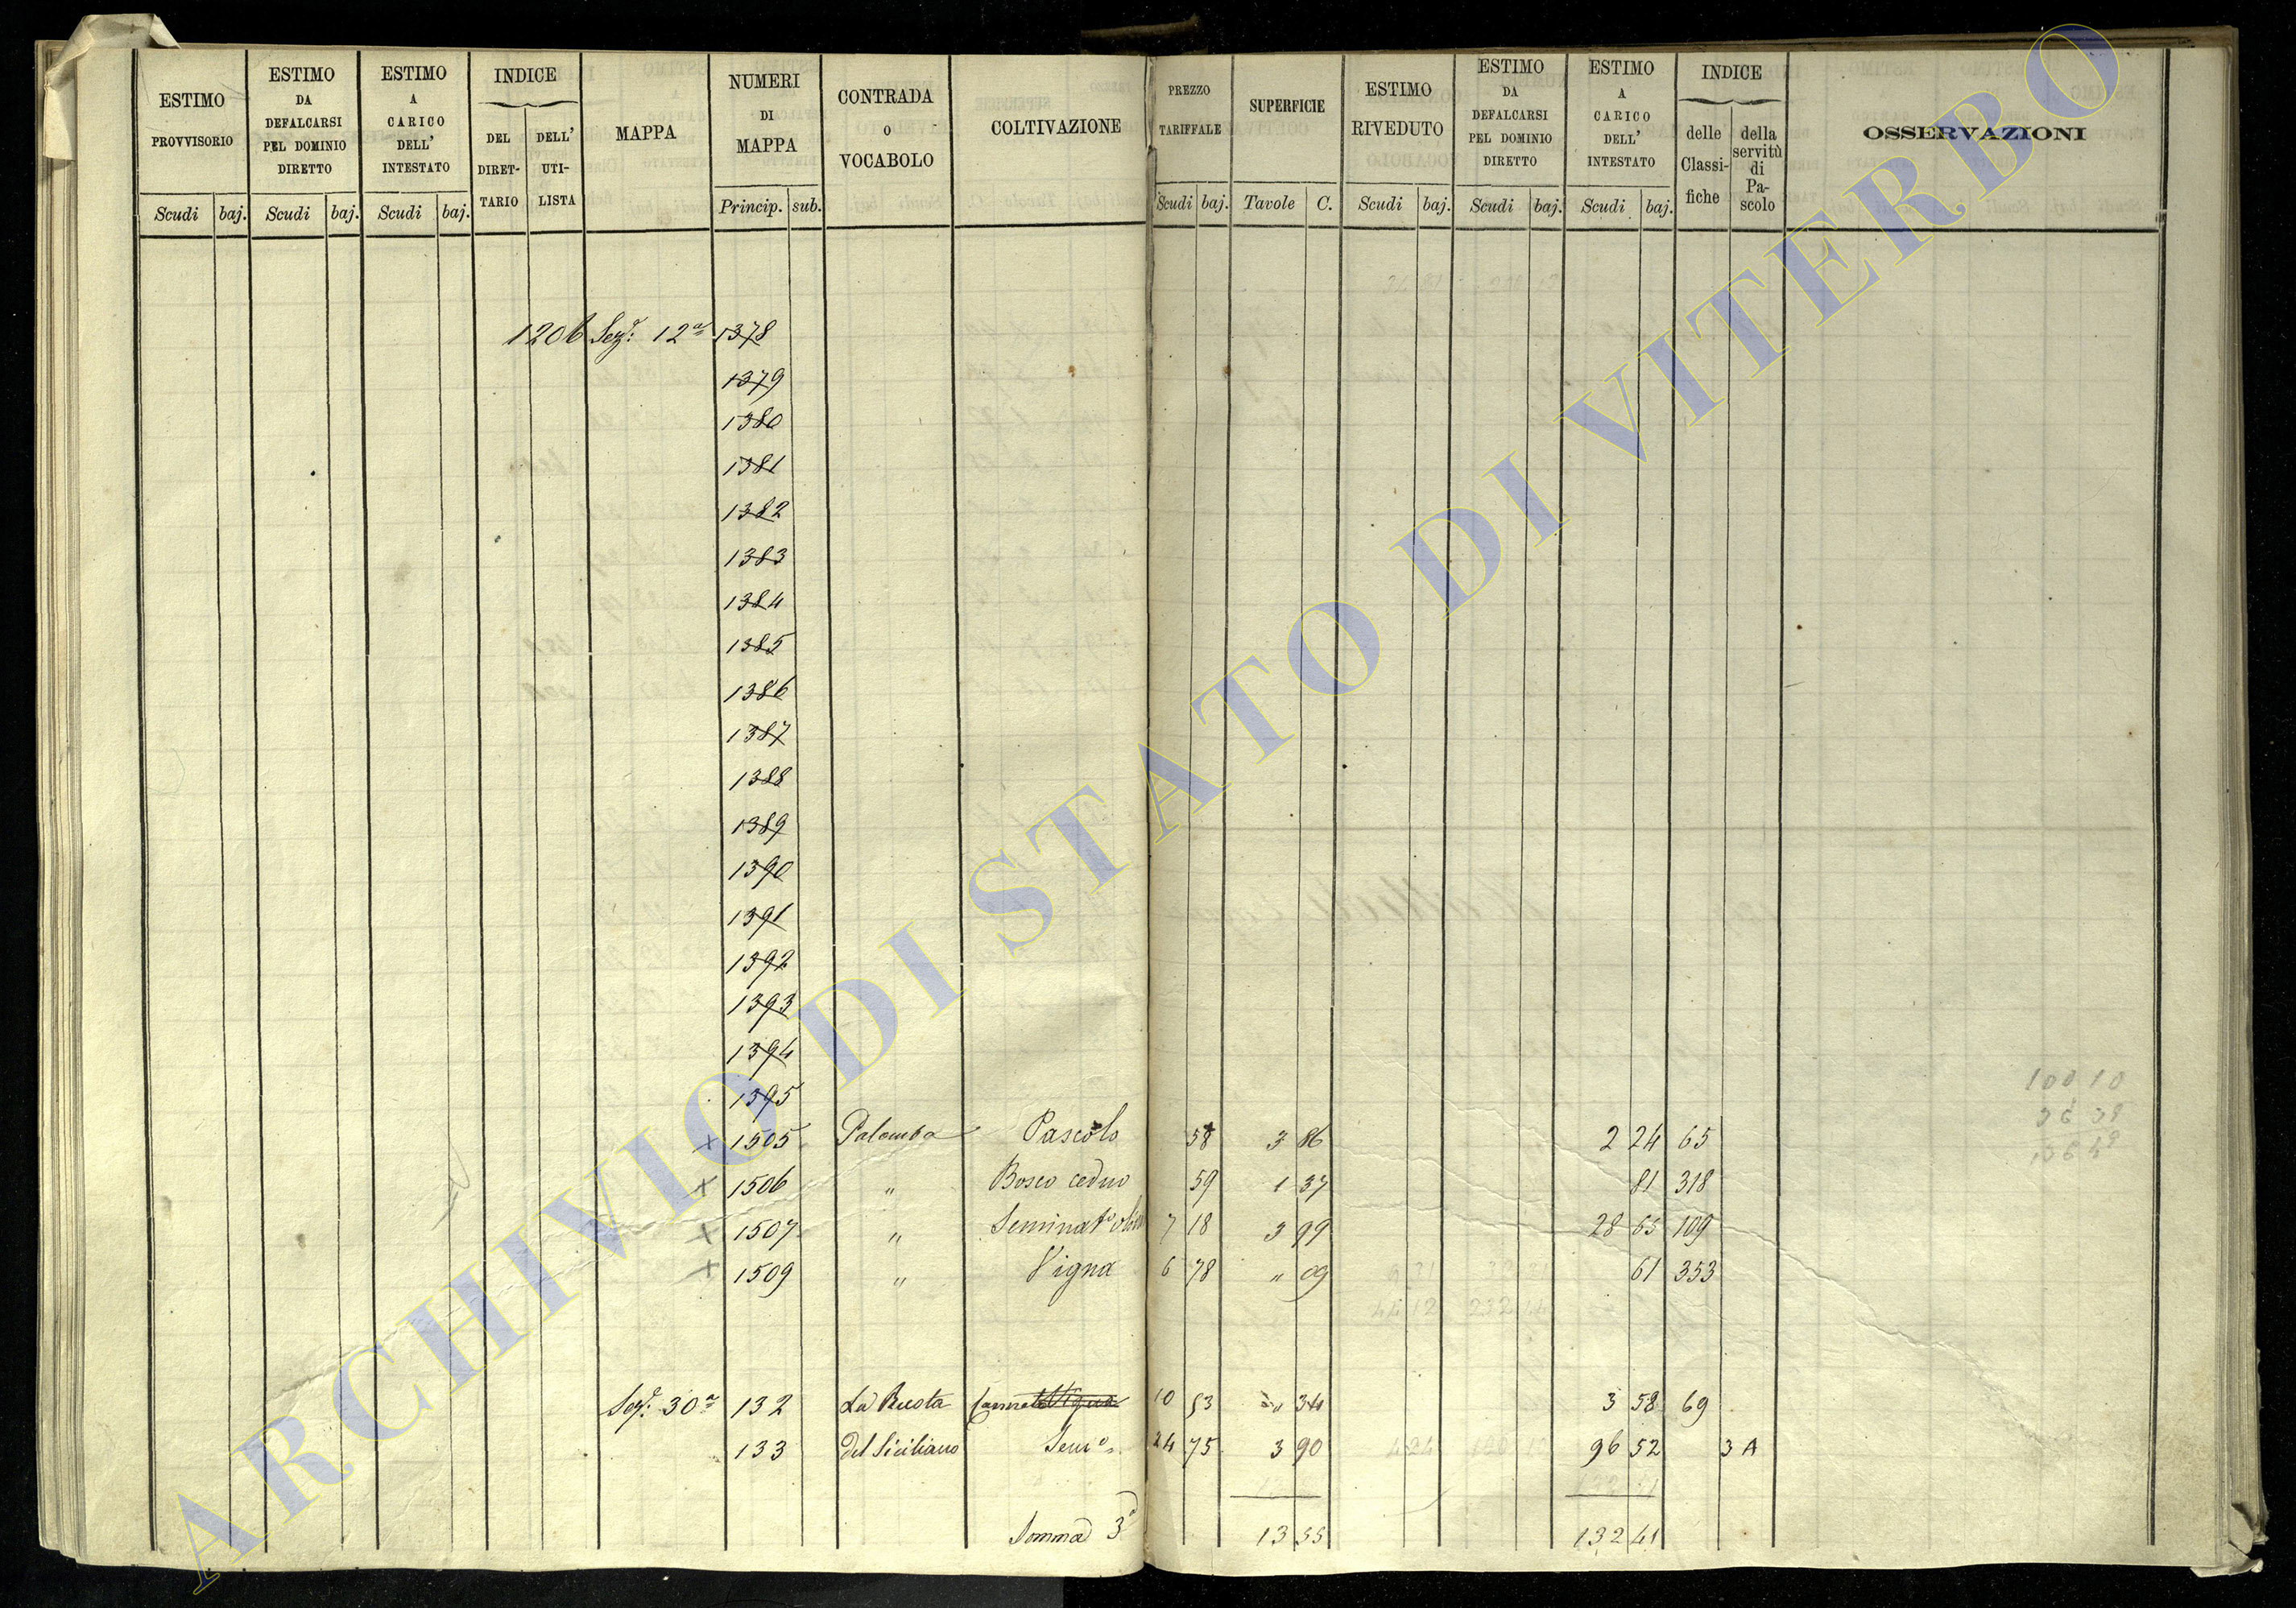 ESTIMO PROVVISORIO | ESTIMO DA DEFALCARSI PEL DOMINIO DIRETTO | ESTIMO A CARICO DELL' INTESTATO | INDICE | MAPPA | NUMERI DI MAPPA | CONTRADA O VOCABOLO | COLTIVAZIONE | PREZZO TARIFFALE | SUPERFICIE | ESTIMO RIVEDUTO | ESTIMO DA DEFALCARSI PEL DOMINIO DIRETTO | ESTIMO A CARICO DELL' INTESTATO | INDICE | OSSERVAZIONI
DEL DIRET-TARIO | DELL' UTI-LISTA | delle Classi-fiche | della servitù di Pa-scolo
Scudi | baj. | Scudi | baj. | Scudi | baj. | Princip. | sub. | Scudi | baj. | Tavole | C. | Scudi | baj. | Scudi | baj. | Scudi | baj.
1206 Sez.e 12a 1378
1379
1380
1381
1382
1383
1384
1385
1386
1387
1388
1389
1390
1391
1392
1393
1394
1395
x 1505 Palomba Pascolo 58 3 86 2 24 65
x 1506 " Bosco ceduo 59 1 37 81 318
x 1507 " Seminato 7 18 3 99 28 65 109
x 1509 " Vigna 6 78 " 09 61 353
Sez.e 30a 132 La Rusta 10 53 " 34 3 58 69
133 del Siciliano Semo 24 75 3 90 96 52 3 A
Somma 3a 13 55 132 41
100 10
36 39
136 49
ARCHIVIO DI STATO DI VITERBO